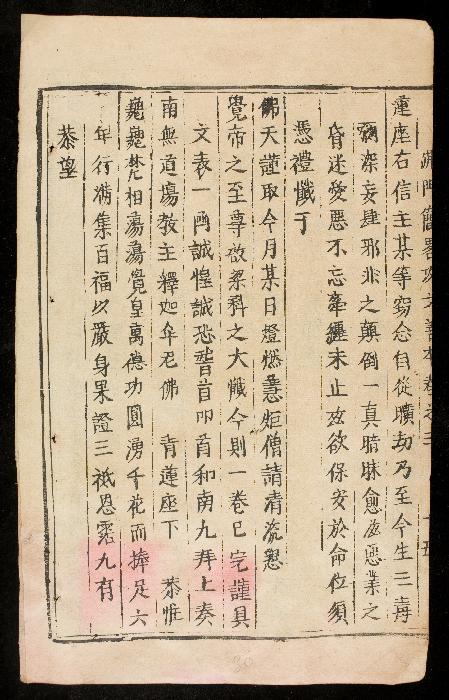 蓮座右信主某等窃念自從曠劫乃至今生三毒
深妄肆邪非之顛倒一真暗昧愈滋惡業之
昏迷愛惡不忘牽纏未止玆欲保安於命位須
憑禮懺于
佛天謹取今月某日燈燃慧炬僧請清流懇
覺帝之至尊啟梁科之大懺今則一卷已完謹具
文表一凾誠惶誠恐稽首叩首和南九拜上奏
南無道場教主釋迦牟尼佛 青蓮座下 恭惟
巍巍梵相蕩蕩覺皇萬德功圓湧千花而捧足六
年行滿集百福以嚴身果證三祇恩霑九有
恭望